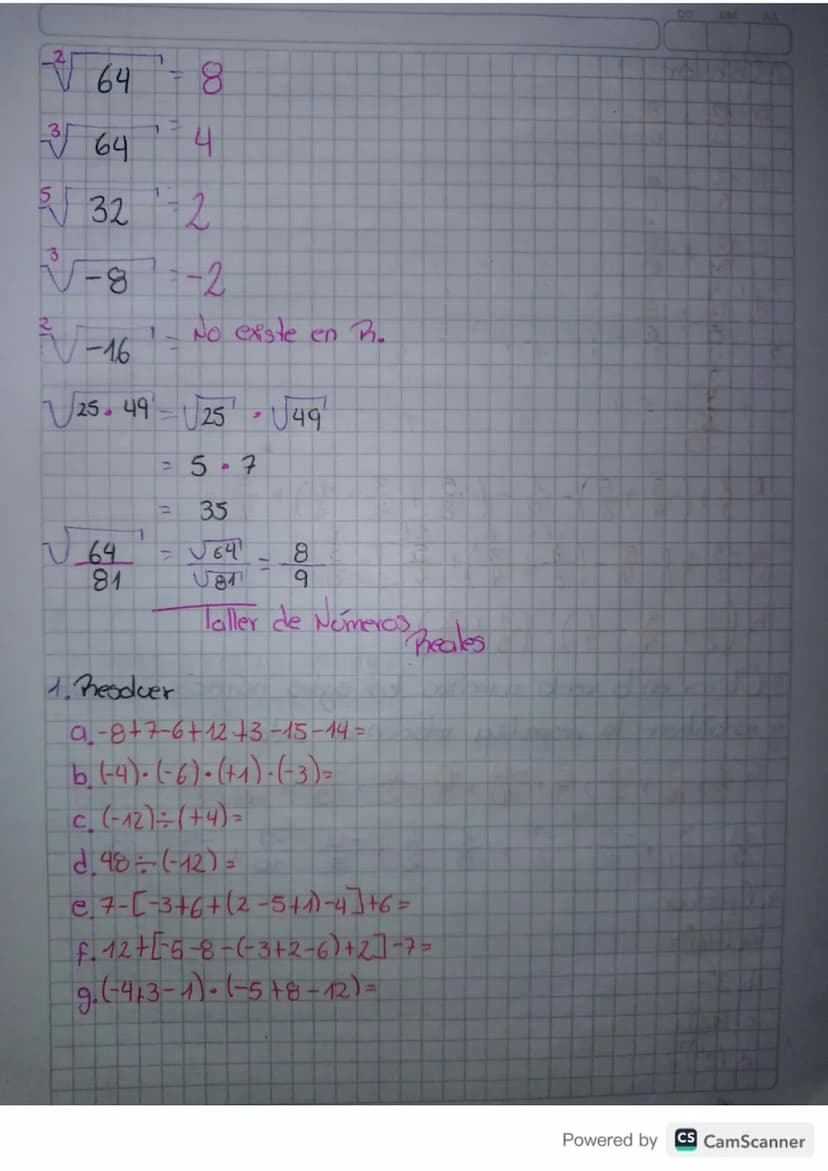 ²√64 = 8
³√64 = 4
⁵√32 = 2
³√-8 = -2
²√-16 = No existe en R.
√25 · 49 = √25 · √49
= 5 · 7
= 35
√64/81 = √64/√81 = 8/9
Taller de Números Reales
1. Resolver
a. -8+7-6+12+3-15-14=
b. (-4)·(-6)·(+1)·(-3)=
c. (-12)÷(+4)=
d. 48÷(-12)=
e. 7-[-3+6+(2-5+1)-4]+6=
f. 12+[-5-8-(-3+2-6)+2]-7=
g. (-4+3-1)·(-5+8-12)=
Powered by CS CamScanner